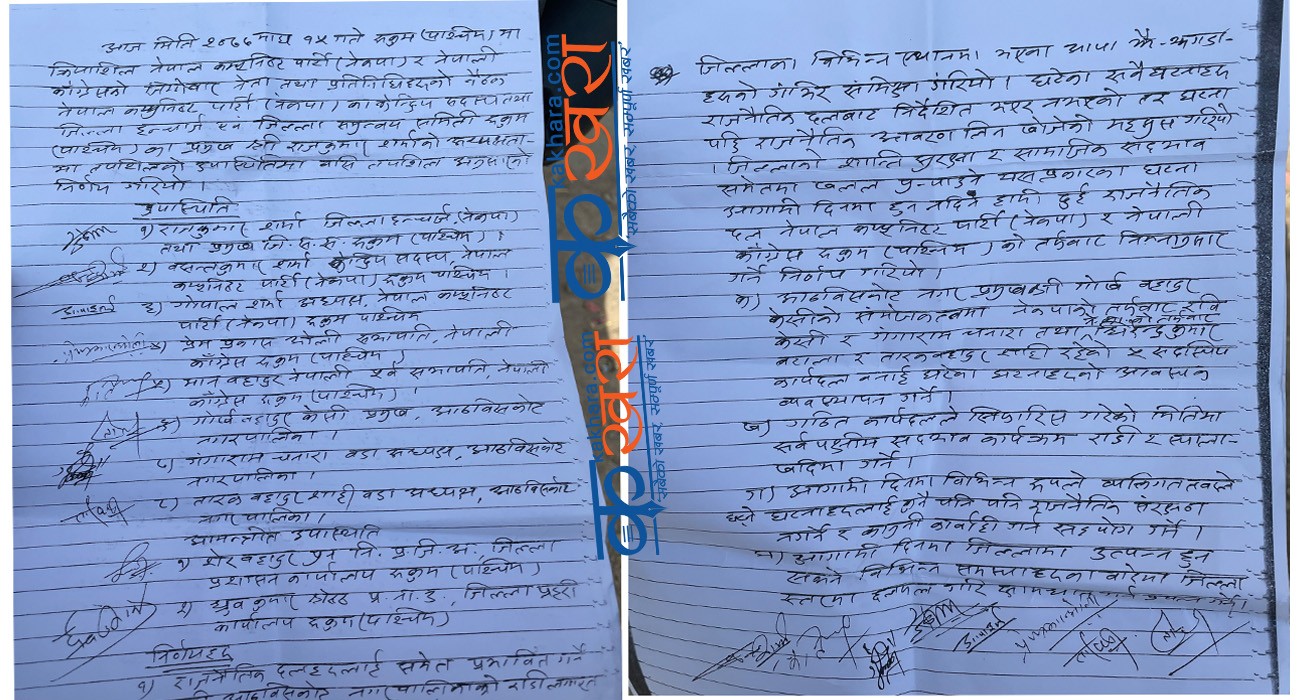 आज मिति २०७७ माघ १५ गते रूकुम (पश्चिम) मा
क्रियाशिल नेपाल कम्युनिष्ट पार्टी (नेकपा) र नेपाली
काँग्रेसको जिम्मेवार नेता तथा प्रतिनिधिहरूको बैठक
नेपाल कम्युनिष्ट पार्टी (नेकपा) का केन्द्रिय सदस्य तथा
जिल्ला इन्चार्ज एवं जिल्ला समन्वय समिती रूकुम
(पश्चिम) का प्रमुख श्री राजकुमार शर्माको अध्यक्षता-
मा तपशिलको उपस्थितिमा बसि तपशिल अनुसारको
निर्णय गरियो ।
उपस्थिति
१) राजकुमार शर्मा जिल्ला इन्चार्ज (नेकपा)
तथा प्रमुख जि. स. स. रूकुम (पश्चिम) ।
२) बसन्तकुमार शर्मा केन्द्रिय सदस्य, नेपाल
कम्युनिष्ट पार्टी (नेकपा) रूकुम पश्चिम ।
३) गोपाल शर्मा अध्यक्ष, नेपाल कम्युनिष्ट
पार्टी (नेकपा) रूकुम पश्चिम
४) प्रेम प्रकाश ओली सभापति, नेपाली
काँग्रेस रूकुम (पश्चिम)
५) मान बहादुर नेपाली पूर्व सभापति, नेपाली
काँग्रेस रूकुम (पश्चिम) ।
६) गोर्ख बहादुर केसी प्रमुख, आठबिसकोट
नगरपालिका ।
७) गंगाराम चनारा वडा अध्यक्ष, आठबिसकोट
नगरपालिका ।
८) तारक बहादुर शाही वडा अध्यक्ष, आठबिसकोट
नगरपालिका ।
आमन्त्रीत उपस्थिति
१) शेर बहादुर पुन नि. प्र. जि. अ. जिल्ला
प्रशासन कार्यालय रूकुम (पश्चिम)
२) ध्रुव कुमार प्र. ना. उ., जिल्ला प्रहरी
कार्यालय रूकुम (पश्चिम)
निर्णयहरू
१) राजनैतिक दलहरूलाई समेत प्रभावित गर्ने
आठबिसकोट नगरपालिकाको राडी लगायत
जिल्लाका बिभिन्न स्थानमा भएका झै-झगडा-
हरूको गम्भिर समिक्षा गरियो । घटेका सबै घटनाहरू
राजनैतिक दलबाट निर्देशित भएर नभएको तर घटना
पछि राजनैतिक आवरण लिन खोजेको महसुस गरियो
। जिल्लाको शान्ति सुरक्षा र सामाजिक सदभाव
समेतमा खलल पुर्‍याउने यस प्रकारका घटना
आगामी दिनमा हुन नदिन हामी दुई राजनैतिक
दल नेपाल कम्युनिष्ट पार्टी (नेकपा) र नेपाली
काँग्रेस रूकुम (पश्चिम) को तर्फबाट निम्नानुसार
गर्ने निर्णय गरियो ।
क) आठबिसकोट नगर प्रमुख श्री गोर्ख बहादुर
केसीको संयोजकत्वमा नेकपाको तर्फबाट रवि
केसी र गंगाराम चनारा तथा ने.का. को तर्फबाट कुमार
बटाला र तारक बहादुर शाही रहेको ५ सदस्यिय
कार्यदल बनाई घटेका घटनाहरूको आवश्यक
व्यवस्थापन गर्ने ।
ख) गठित कार्यदलले सिफारिस गरेको मितिमा
सर्व पक्षीय सदभाव कार्यक्रम राडी र स्याला-
खदिमा गर्ने ।
ग) आगामी दिनमा बिभिन्न रूपले व्यक्तिगत तवरले
घट्ने घटनाहरूलाई कुनै पनि राजनैतिक संरक्षण
नगर्ने र कानुनी कार्वाही गर्न सहयोग गर्ने ।
घ) आगामी दिनमा जिल्लामा उत्पन्न हुन
सक्ने बिभिन्न समस्याहरूका बारेमा जिल्ला
स्तरमा छलफल गरि
कखरा
kakhara.com
सबैको खबर, सम्पूर्ण खबर
कखरा
kakhara.com
सबैको खबर, सम्पूर्ण खबर